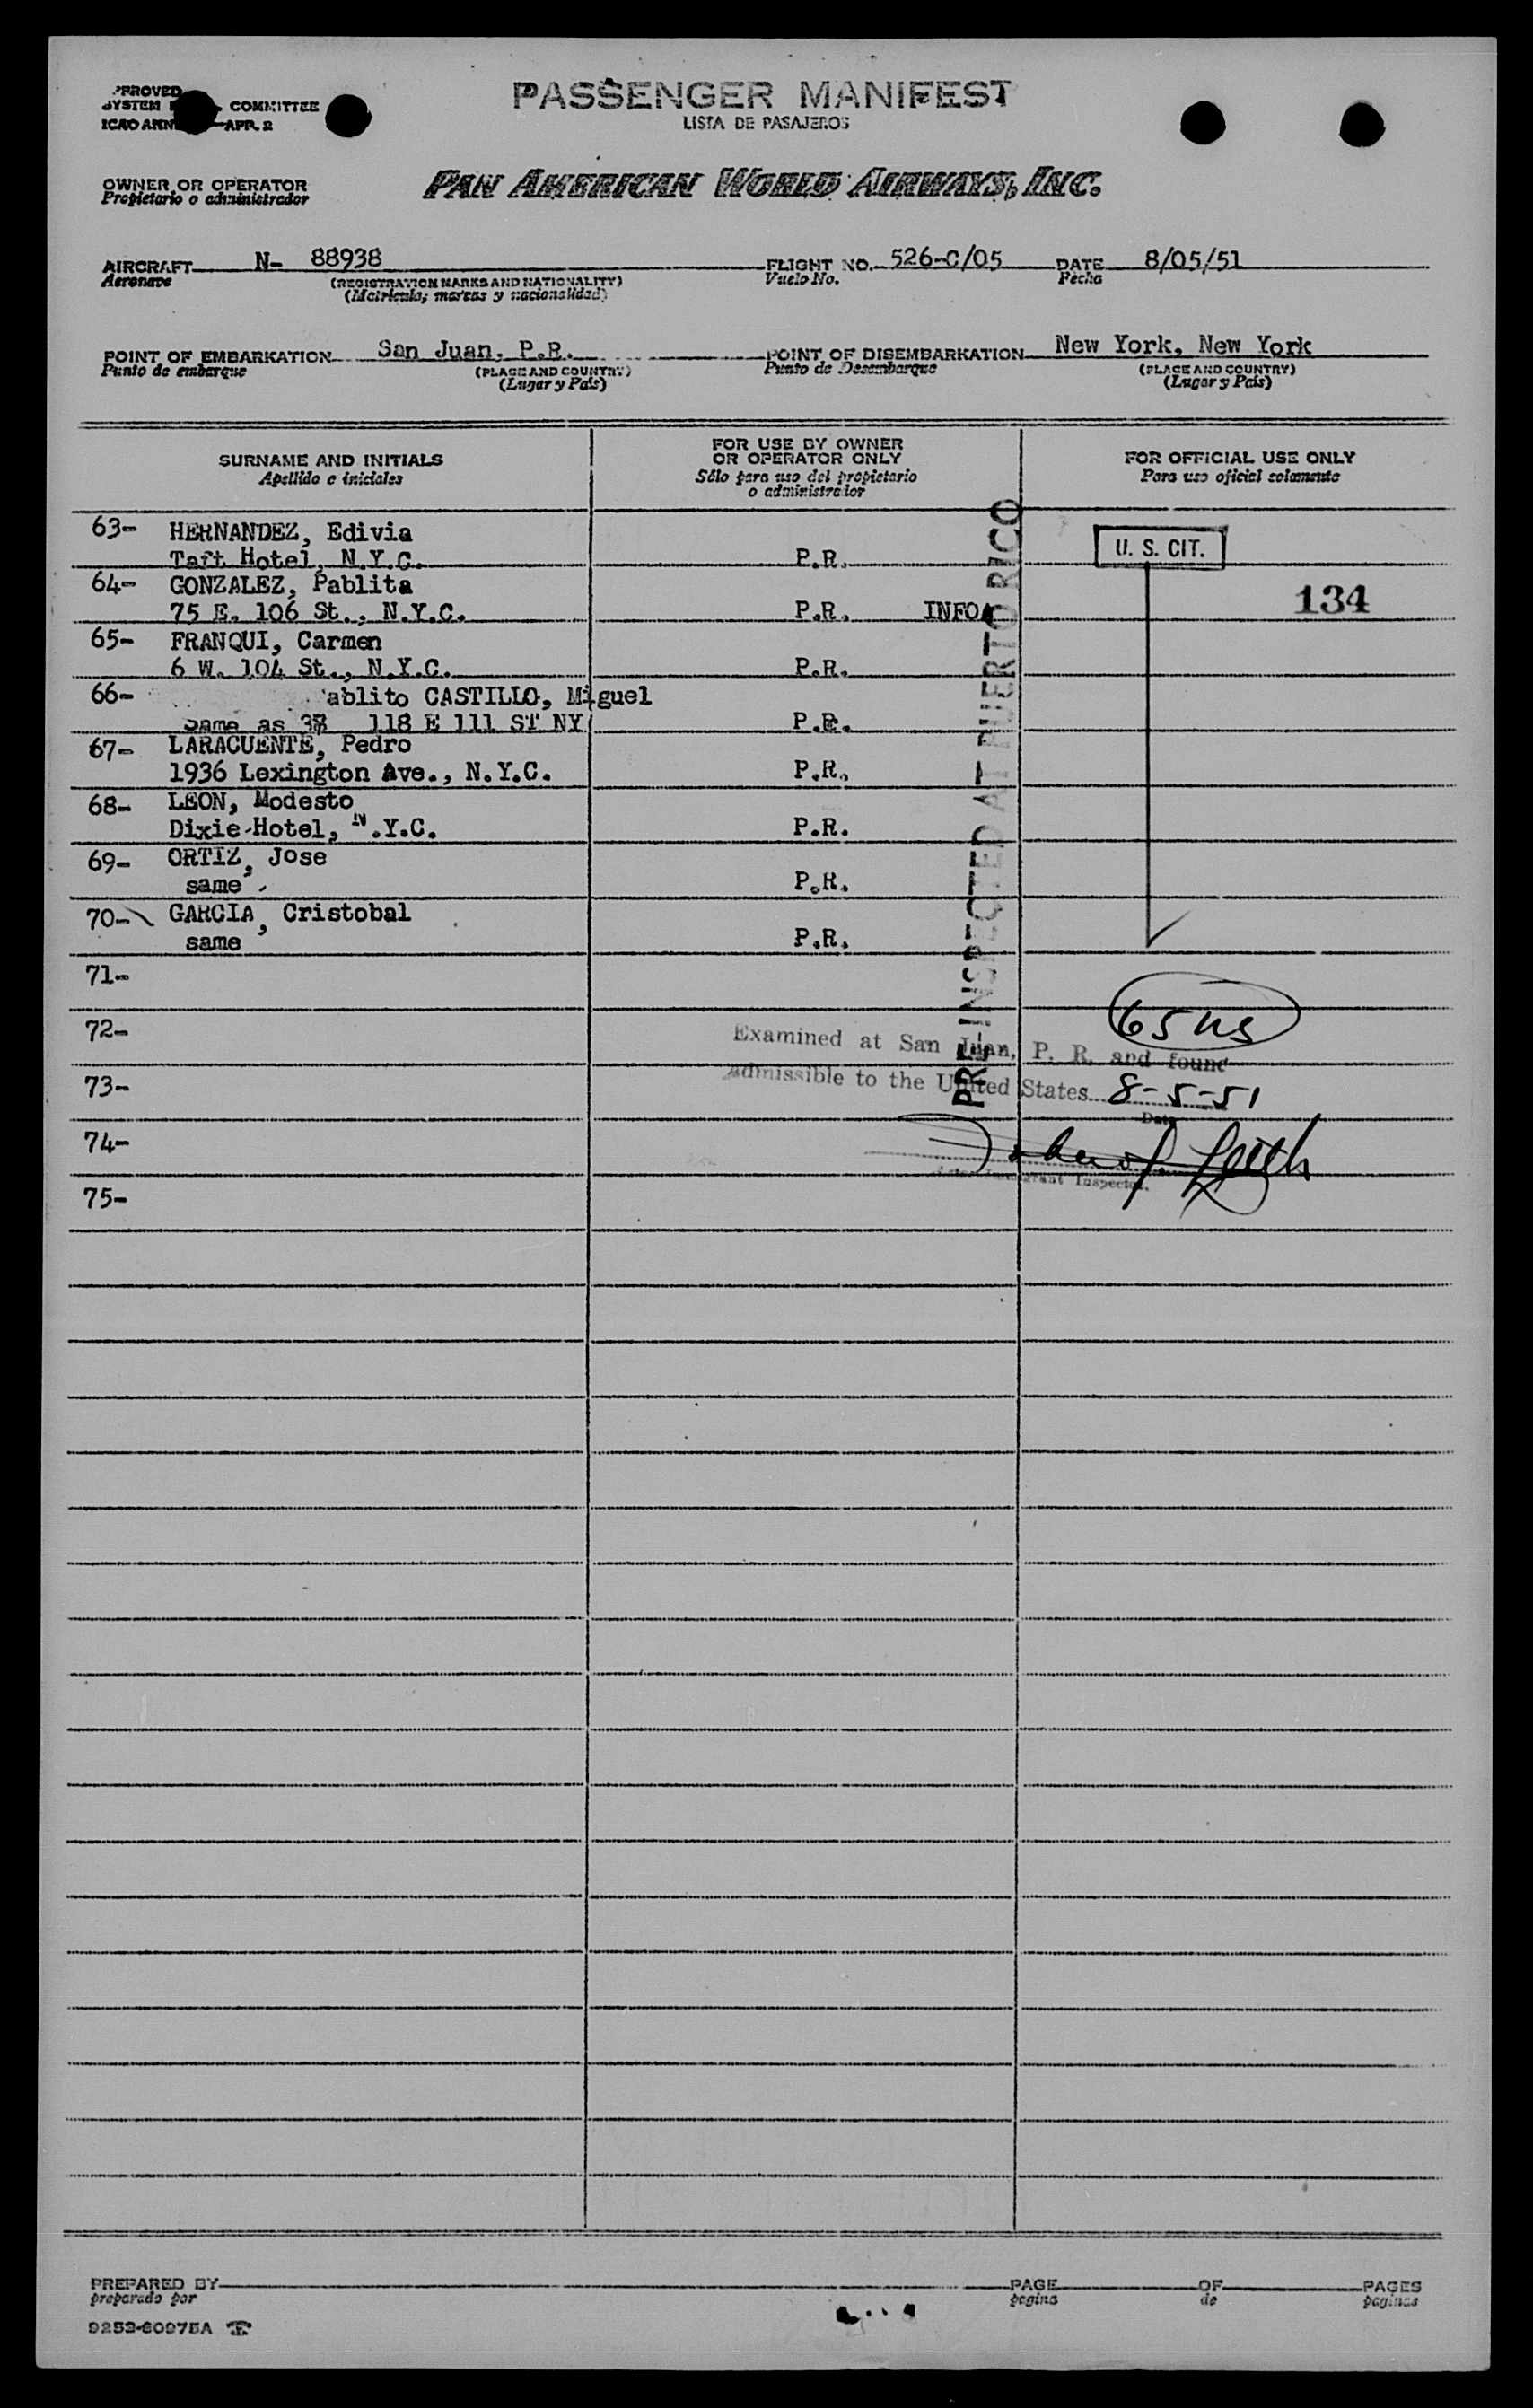 PASSENGER MANIFEST
LISTA DE PASAJEROS
COMMITTEE
APR. 2
OWNER OR OPERATOR
Propietario o administrador
PAN AMERICAN WORLD AIRWAYS, INC.
AIRCRAFT N- 88938 FLIGHT NO. 526-C/05 DATE 8/05/51
Aeronave (REGISTRATION MARKS AND NATIONALITY) Vuelo No. Fecha
(Matrícula; marcas y nacionalidad)
POINT OF EMBARKATION San Juan, P.R. POINT OF DISEMBARKATION New York, New York
Punto de embarque (PLACE AND COUNTRY) Punto de Desembarque (PLACE AND COUNTRY)
(Lugar y País) (Lugar y País)
SURNAME AND INITIALS
Apellido e iniciales
FOR USE BY OWNER
OR OPERATOR ONLY
Sólo para uso del propietario
o administrador
FOR OFFICIAL USE ONLY
Para uso oficial solamente
63- HERNANDEZ, Edivia
Taft Hotel, N.Y.C. P.R.
U. S. CIT.
64- GONZALEZ, Pablita
75 E. 106 St., N.Y.C. P.R. INFO
134
65- FRANQUI, Carmen
6 W. 104 St., N.Y.C. P.R.
66- ablito CASTILLO, Miguel
same as 118 E 111 ST NY P.R.
67- LARACUENTE, Pedro
1936 Lexington Ave., N.Y.C. P.R.
68- LEON, Modesto
Dixie Hotel, N.Y.C. P.R.
69- ORTIZ, Jose
same P.R.
70- GARCIA, Cristobal
same P.R.
PRE-INSPECTED AT PUERTO RICO
71-
72-
73-
74-
75-
Examined at San Juan, P. R. and found
Admissible to the United States 8-5-51
Date
Immigrant Inspector.
PREPARED BY PAGE OF PAGES
preparado por pagina de paginas